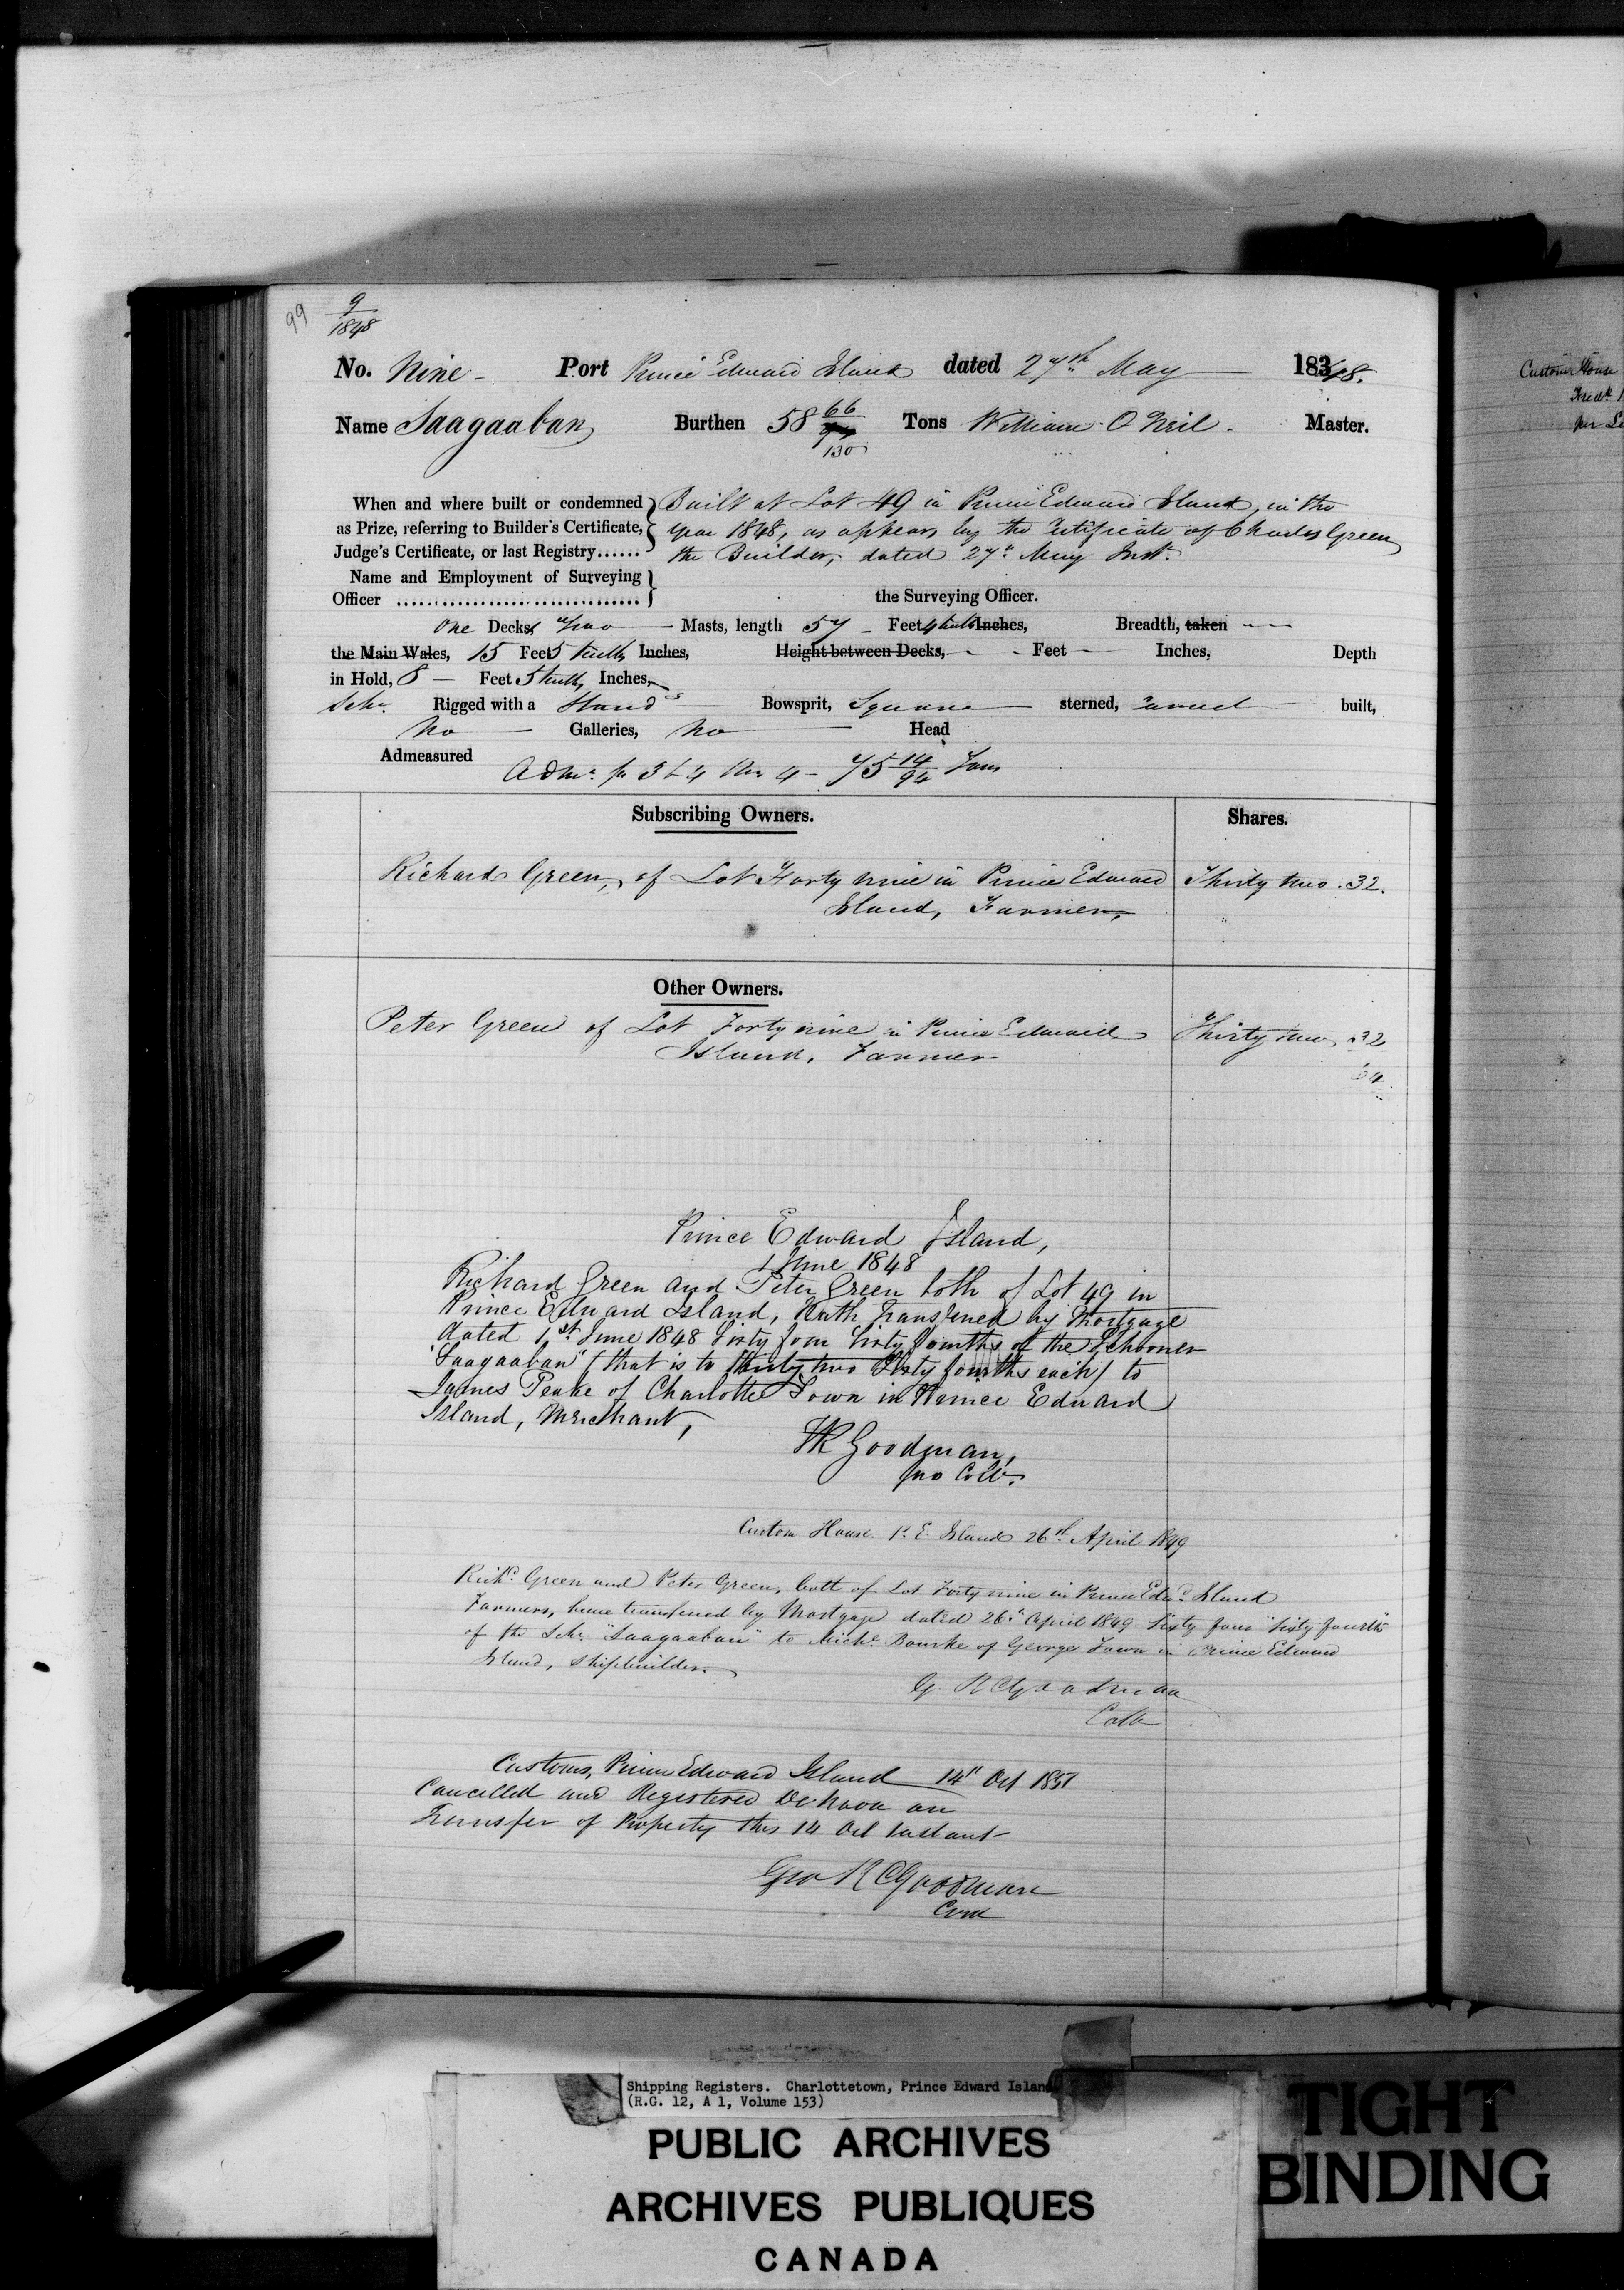 99
9
1848
No. Nine - Port Prince Edward Island dated 27th May 1848.
Name Saagaaban Burthen 58 66/130 Tons William O Neil. Master.
When and where built or condemned Built at Lot 49 in Prince Edward Island, in the
as Prize, referring to Builder's Certificate, year 1848, as appears by the Certificate of Charles Green
Judge's Certificate, or last Registry...... the Builder, dated 27th May Inst.
Name and Employment of Surveying
Officer the Surveying Officer.
One Decks Two Masts, length 57 Feet 4 tenths Inches, Breadth, taken
the Main Wales, 15 Feet 5 tenths Inches, Height between Decks, Feet Inches, Depth
in Hold, 8 Feet 5 tenths, Inches,
Schr. Rigged with a Stand'g Bowsprit, Square sterned, Carvel built,
No Galleries, No Head
Admeasured
75 14/94 Tons
Subscribing Owners. Shares.
Richard Green, of Lot Forty nine in Prince Edward Thirty two. 32.
Island, Farmer,
Other Owners.
Peter Green of Lot Forty nine in Prince Edward Thirty two 32
Island, Farmer
64
Prince Edward Island,
1 June 1848
Richard Green and Peter Green both of Lot 49 in
Prince Edward Island, Hath Transferred by Mortgage
dated 1st June 1848 Sixty four Sixty fourths of the Schooner
"Saagaaban" (that is to thirty two Sixty fourths each) to
James Peake of Charlotte Town in Prince Edward
Island, Merchant,
Goodman,
pro Collr.
Custom House P. E. Island 26th April 1849
Richd. Green and Peter Green, both of Lot Forty nine in Prince Edwd. Island
Farmers, have transferred by Mortgage dated 26th April 1849 Sixty four "Sixty fourths"
of the Schr. "Saagaaban" to Michl. Bourke of George Town in Prince Edward
Island, Shipbuilder.
G. R Goodman
Collr
Customs, Prince Edward Island 14th Oct 1851
Cancelled and Registered De Novo on
Transfer of Property this 14 Oct Instant
Geo R Goodman
Custom House
Shipping Registers. Charlottetown, Prince Edward Island
(R.G. 12, A 1, Volume 153)
PUBLIC ARCHIVES
ARCHIVES PUBLIQUES
CANADA
TIGHT
BINDING